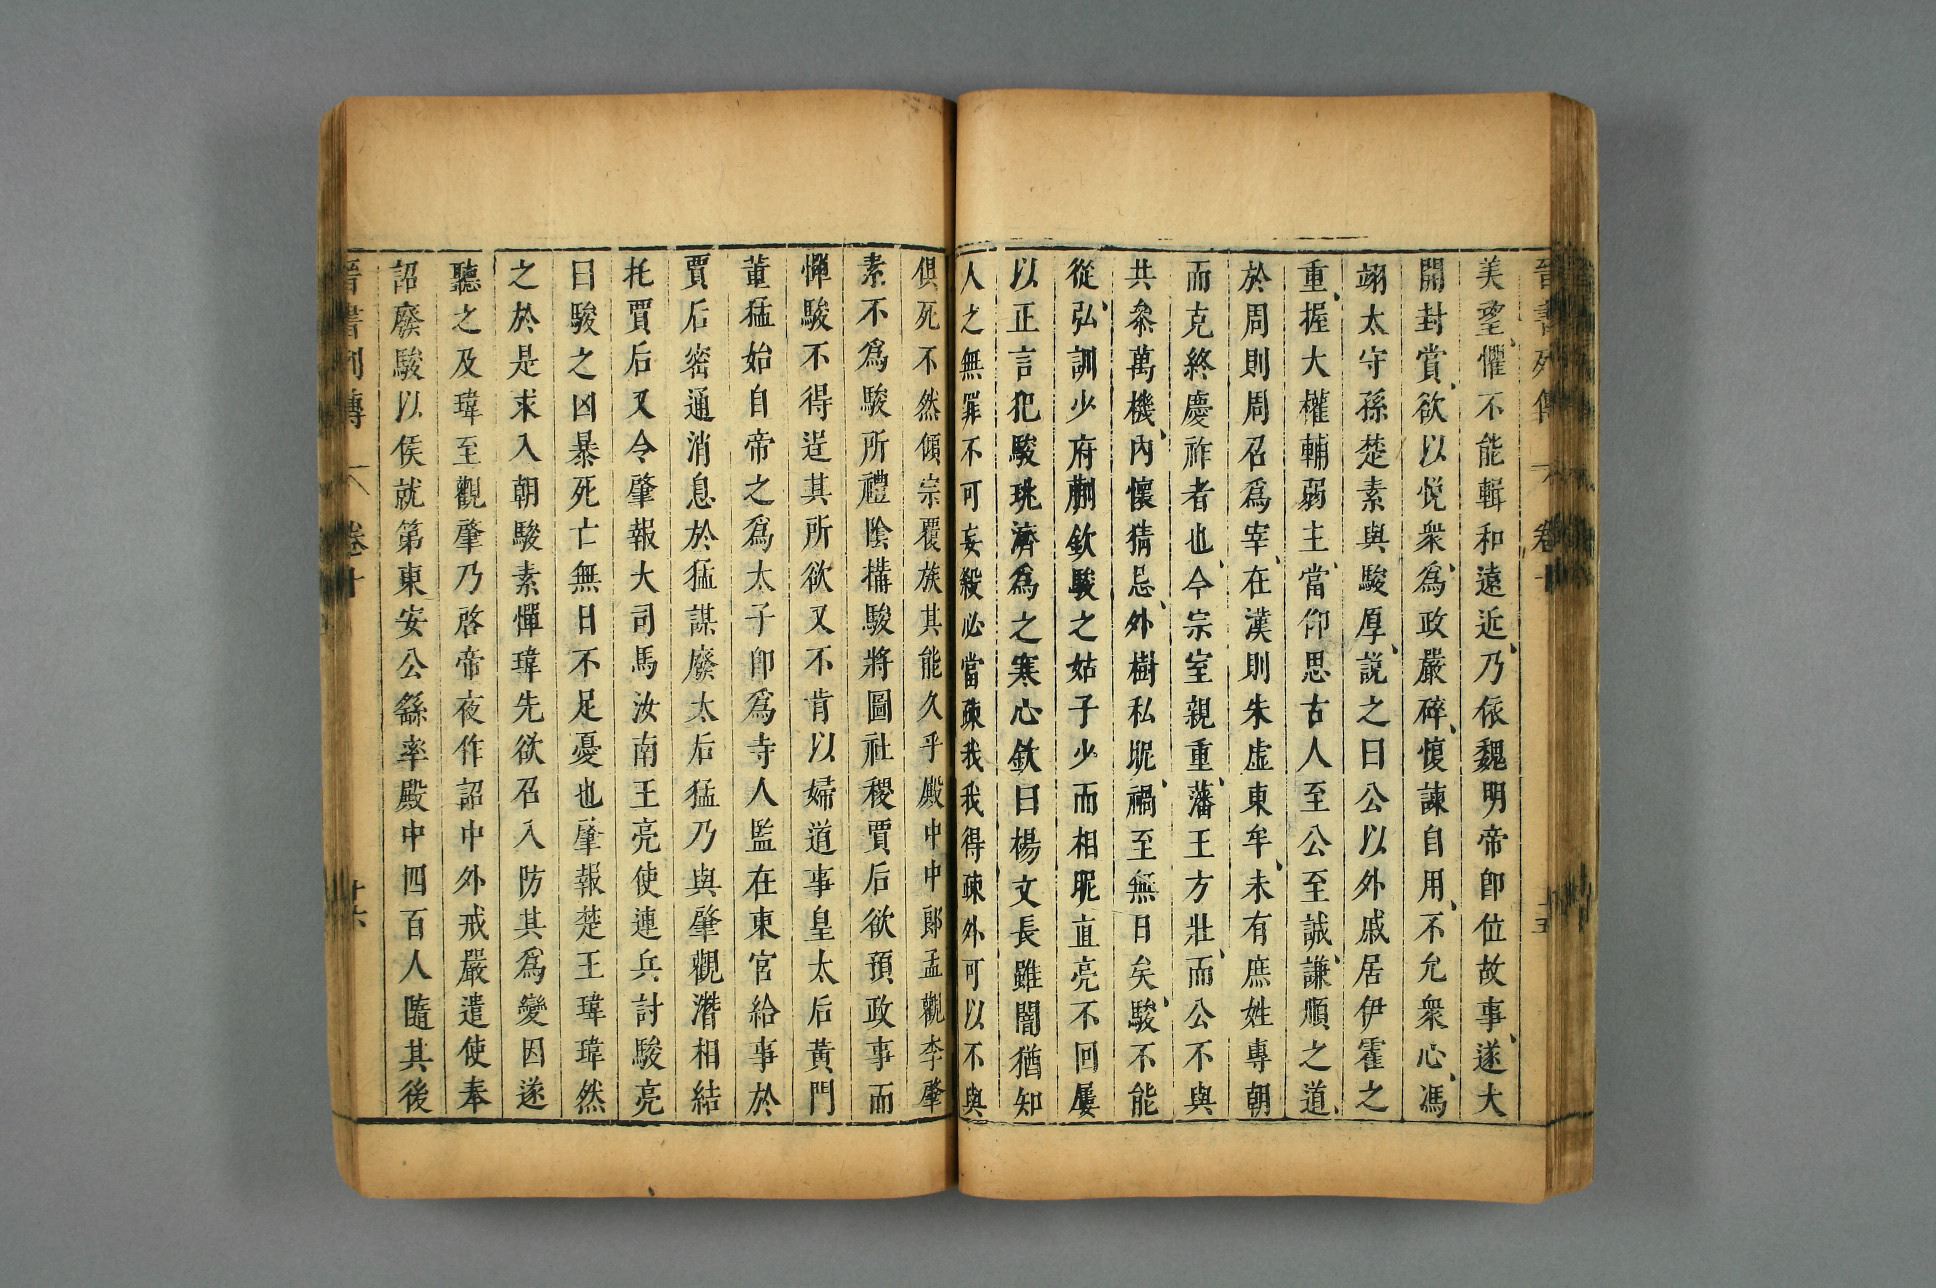 晉書列傳 卷十 十五
美望懼不能輯和遠近乃依魏明帝卽位故事遂大
開封賞欲以悅衆爲政嚴碎愎諫自用不允衆心馮
翊太守孫楚素與駿厚説之曰公以外戚居伊霍之
重握大權輔弱主當仰思古人至公至誠謙順之道
於周則周召爲宰在漢則朱虛東牟未有庶姓專朝
而克終慶祚者也今宗室親重藩王方壯而公不與
共叅萬機內懷猜忌外樹私昵禍至無日矣駿不能
從弘訓少府蒯欽駿之姑子少而相昵直亮不回屢
以正言犯駿珧濟爲之寒心欽曰楊文長雖闇猶知
人之無罪不可妄殺必當疎我我得疎外可以不與
俱死不然傾宗覆族其能久乎殿中中郞孟觀李肇
素不爲駿所禮陰搆駿將圖社稷賈后欲預政事而
憚駿不得逞其所欲又不肯以婦道事皇太后黃門
董猛始自帝之爲太子卽爲寺人監在東宮給事於
賈后密通消息於猛謀廢太后猛乃與肇觀潛相結
托賈后又令肇報大司馬汝南王亮使連兵討駿亮
曰駿之凶暴死亡無日不足憂也肇報楚王瑋瑋然
之於是求入朝駿素憚瑋先欲召入防其爲變因遂
聽之及瑋至觀肇乃啓帝夜作詔中外戒嚴遣使奉
詔廢駿以侯就第東安公繇率殿中四百人隨其後
晉書列傳 卷十 十六